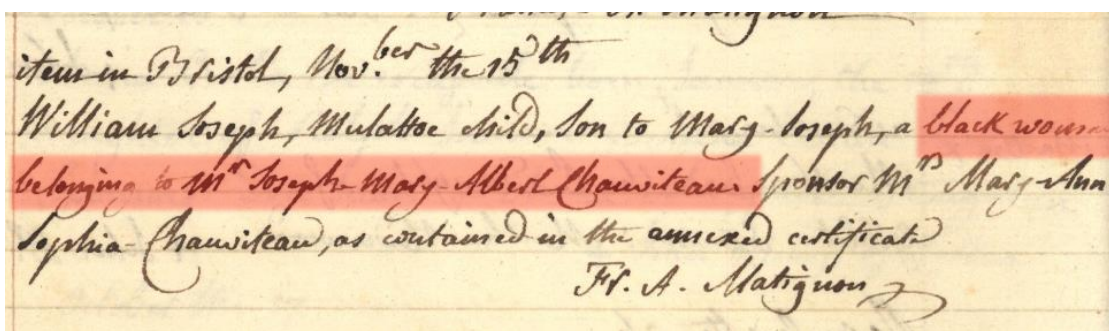 item in Bristol, Nov.ber the 15th
William Joseph, Mulattoe child, Son to Mary-Joseph, a black woman
belonging to Mr Joseph-Mary-Albert Chauviteau. Sponsor Mrs Mary-Ann
Sophia-Chauviteau, as contained in the annexed certificate
Fr. A. Matignon